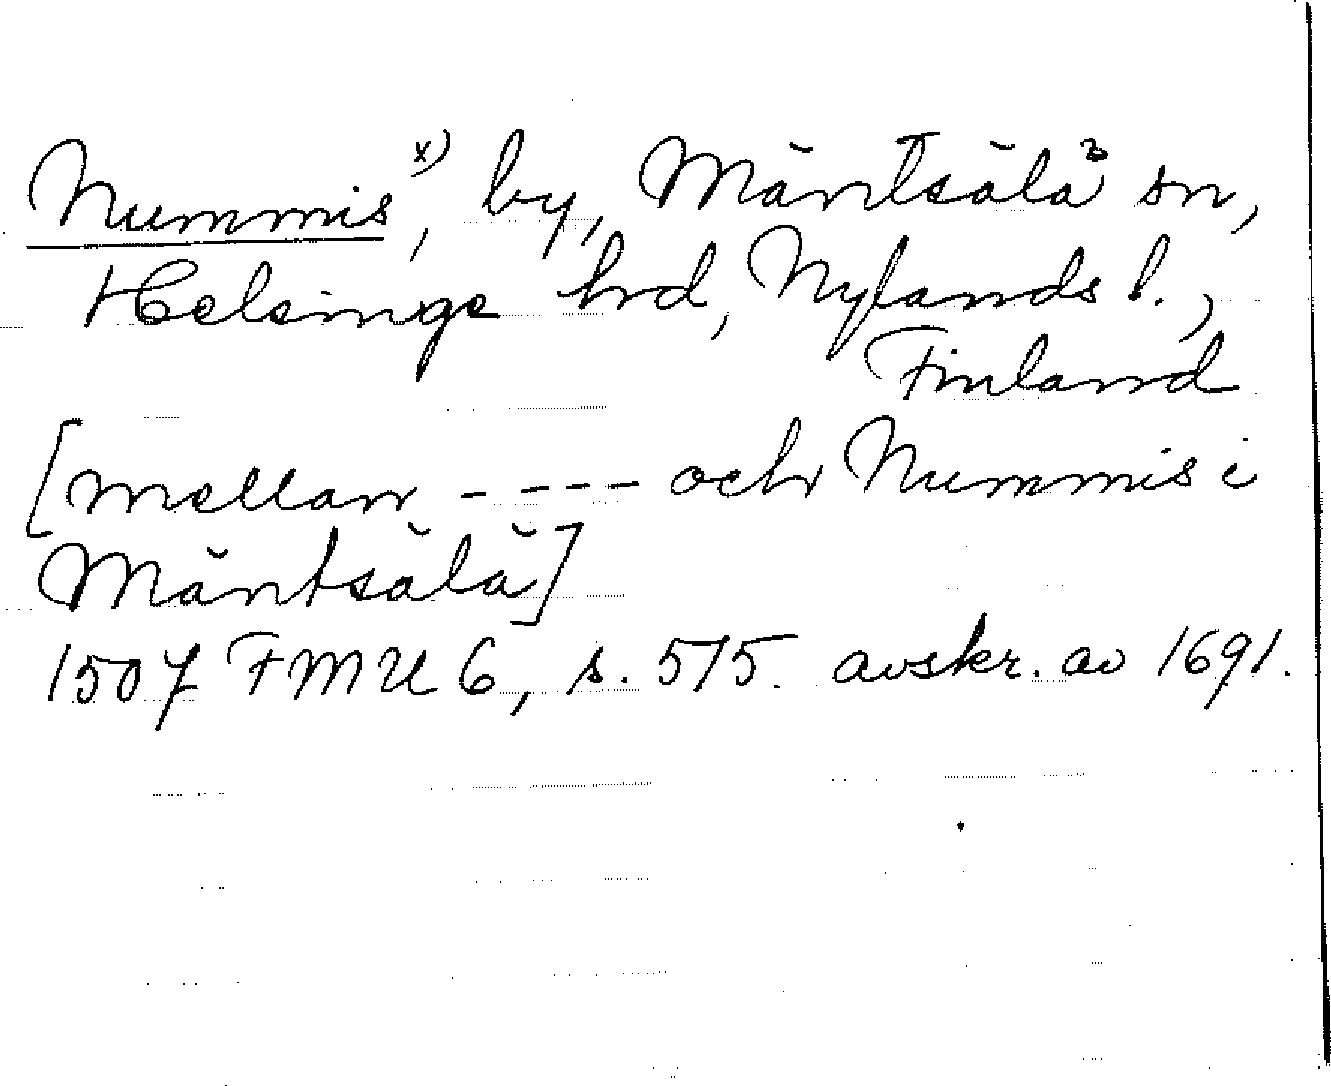 Nummis x), by, Mäntsälä sn,
Helsinge hrd, Nylands l.,
Finland
[mellan ---- och Nummis i
Mäntsälä]
1507 FMU 6, s. 575. avskr. av 1691.